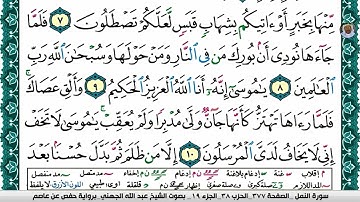 مِّنْهَا بِخَبَرٍ أَوْ ءَاتِيكُم بِشِهَابٍ قَبَسٍ لَّعَلَّكُمْ تَصْطَلُونَ ٧ فَلَمَّا
جَآءَهَا نُودِىَ أَنۢ بُورِكَ مَن فِى ٱلنَّارِ وَمَنْ حَوْلَهَا وَسُبْحَٰنَ ٱللَّهِ رَبِّ
ٱلْعَٰلَمِينَ ٨ يَٰمُوسَىٰٓ إِنَّهُۥٓ أَنَا ٱللَّهُ ٱلْعَزِيزُ ٱلْحَكِيمُ ٩ وَأَلْقِ عَصَاكَۚ
فَلَمَّا رَءَاهَا تَهْتَزُّ كَأَنَّهَا جَآنٌّ وَلَّىٰ مُدْبِرًا وَلَمْ يُعَقِّبْۚ يَٰمُوسَىٰ لَا تَخَفْ
إِنِّى لَا يَخَافُ لَدَىَّ ٱلْمُرْسَلُونَ ١٠ إِلَّا مَن ظَلَمَ ثُمَّ بَدَّلَ حُسْنًۢا بَعْدَ
سورة النمل - الصفحة ٣٧٧ - الحزب ٣٨ - الجزء ١٩ - بصوت الشيخ عبد الله الجهني - برواية حفص عن عاصم